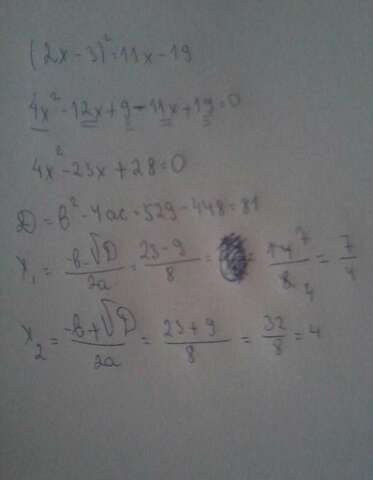 (2x-3)²=11x-19
4x²-12x+9-11x+19=0
4x²-23x+28=0
D=b²-4ac=529-448=81
x₁ = (-b-√D)/2a = (23-9)/8 = = 14/8 = 7/4
x₂ = (-b+√D)/2a = (23+9)/8 = 32/8 = 4